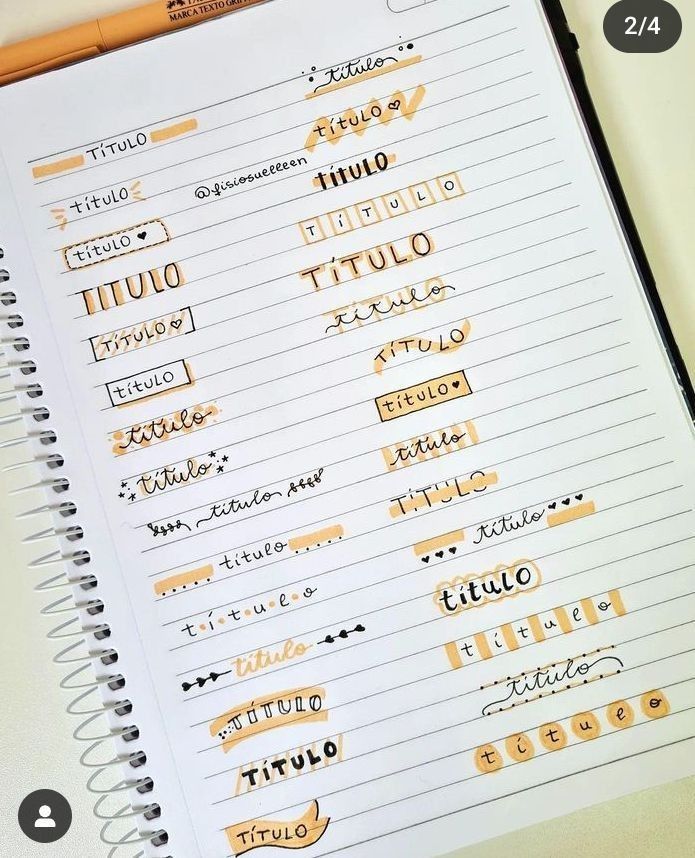 2/4
MARCA TEXTO
TÍTULO
título
títuLO ♥
TÍTULO
TÍTULO ♡
títuLO
título
título
título
título
título
título
TÍTULO
TÍTULO
TÍTULO
@fisiosuelleen
título
títuLO ♡
títULO
TÍTULO
TÍTULO
título
TÍTULO
títuLO ♥
título
TÍTULO
título
títuLO
título
título
título